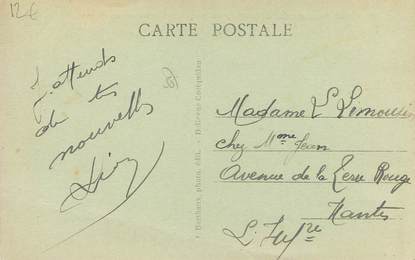 12€
CARTE POSTALE
J'attends
de tes
nouvelles
Madame L Limousin
chez Mme Jean
Avenue de la Terre Rouge
Nantes
L. Infre